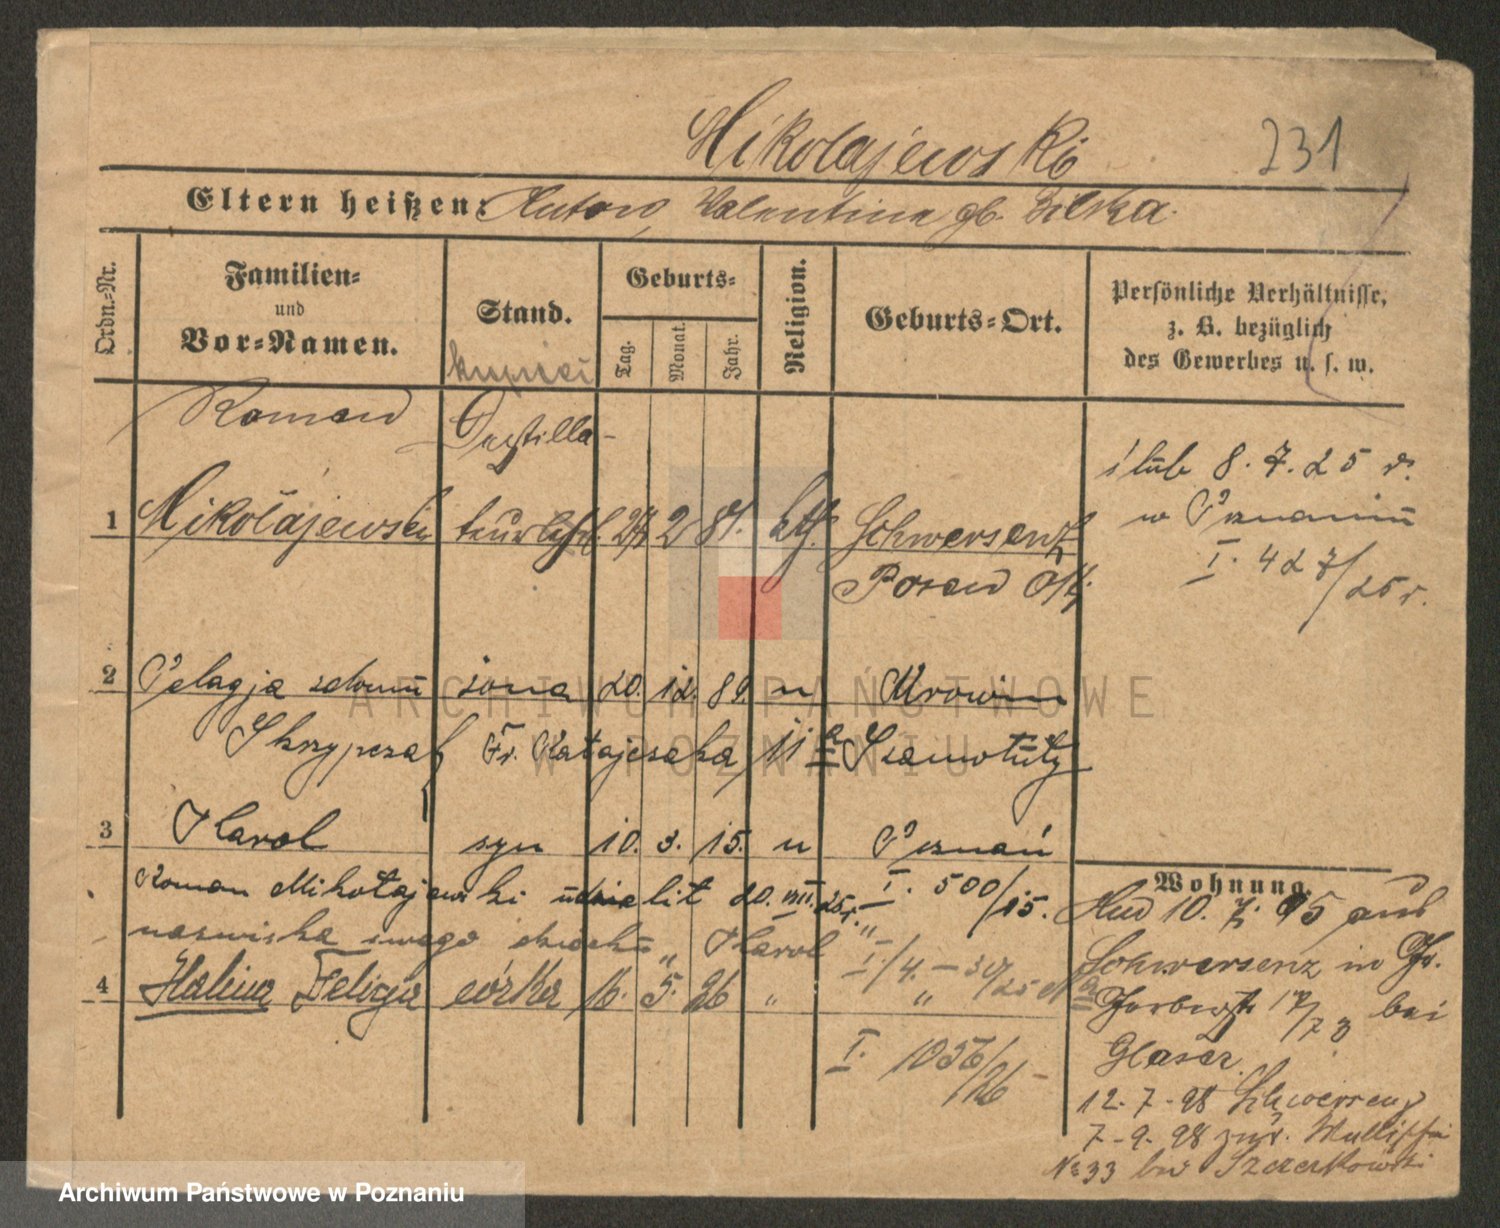 Mikolajewski
231
Eltern heißen: Anton, Valentine gb. Bilska.
Ordn.-Nr.
Familien-
und
Vor-Namen.
Stand.
kupiec
Geburts-
Tag.
Monat.
Jahr.
Religion.
Geburts-Ort.
Persönliche Verhältnisse,
z. B. bezüglich
des Gewerbes u. s. w.
Roman Destilla-
1 Mikołajewski 27 2 87. kth. Schwersenz
Posen Ost.
ślub 8. 7. 25 r.
w Poznaniu
I. 427/25 r.
2 Pelagja z domu żona 20. 12. 89. " Mrowino
Skrzypczak Fr. Ratajczaka, Szamotuły
3 Karol syn 10. 3. 15. " Poznań
I. 500/15.
Roman Mikołajewski udzielił 20. VII. 25 r.
nazwiska swego dziecku " Karol
4 Halina Felicja córka 16. 5. 26 " "
I. 1056/26
Wohnung.
10. 7. 95 aus
Schwersenz in Gr.
Gerberstr 17/73 bei
Glaser.
12. 7. 98 Schwersenz
7. 9. 98 zur. Wallischei
No 33 bei Szczerkowski
ARCHIWUM PAŃSTWOWE
W POZNANIU
Archiwum Państwowe w Poznaniu